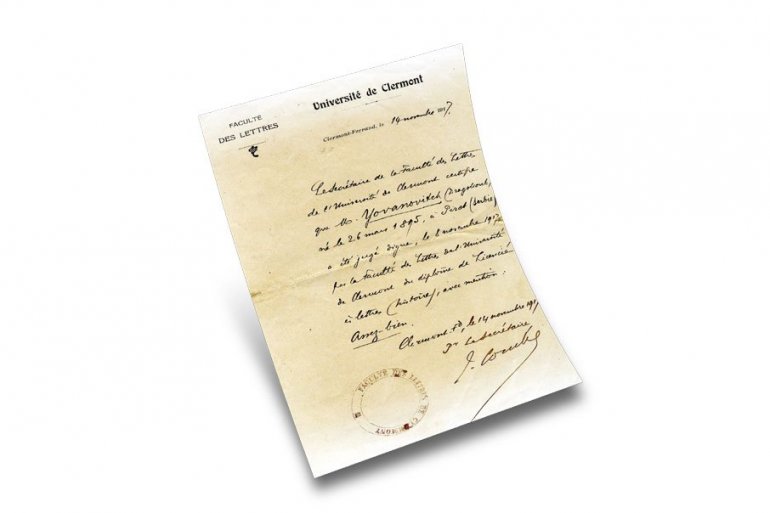 Université de Clermont
FACULTÉ
DES LETTRES
Clermont-Ferrand, le 14 novembre 1917.
Le Secrétaire de la Faculté des Lettres
de l'Université de Clermont certifie
que M. Yovanovitch (Dragolioub),
né le 26 mars 1895, à Pirot (Serbie)
a été jugé digne, le 8 novembre 1917
par la Faculté des Lettres de l'Université
de Clermont du diplôme de Licencié
ès lettres (histoire), avec mention:
Assez-bien.
Clermont-Fd, le 14 novembre 1917
Le Secrétaire,
FACULTÉ DES LETTRES DE CLERMONT